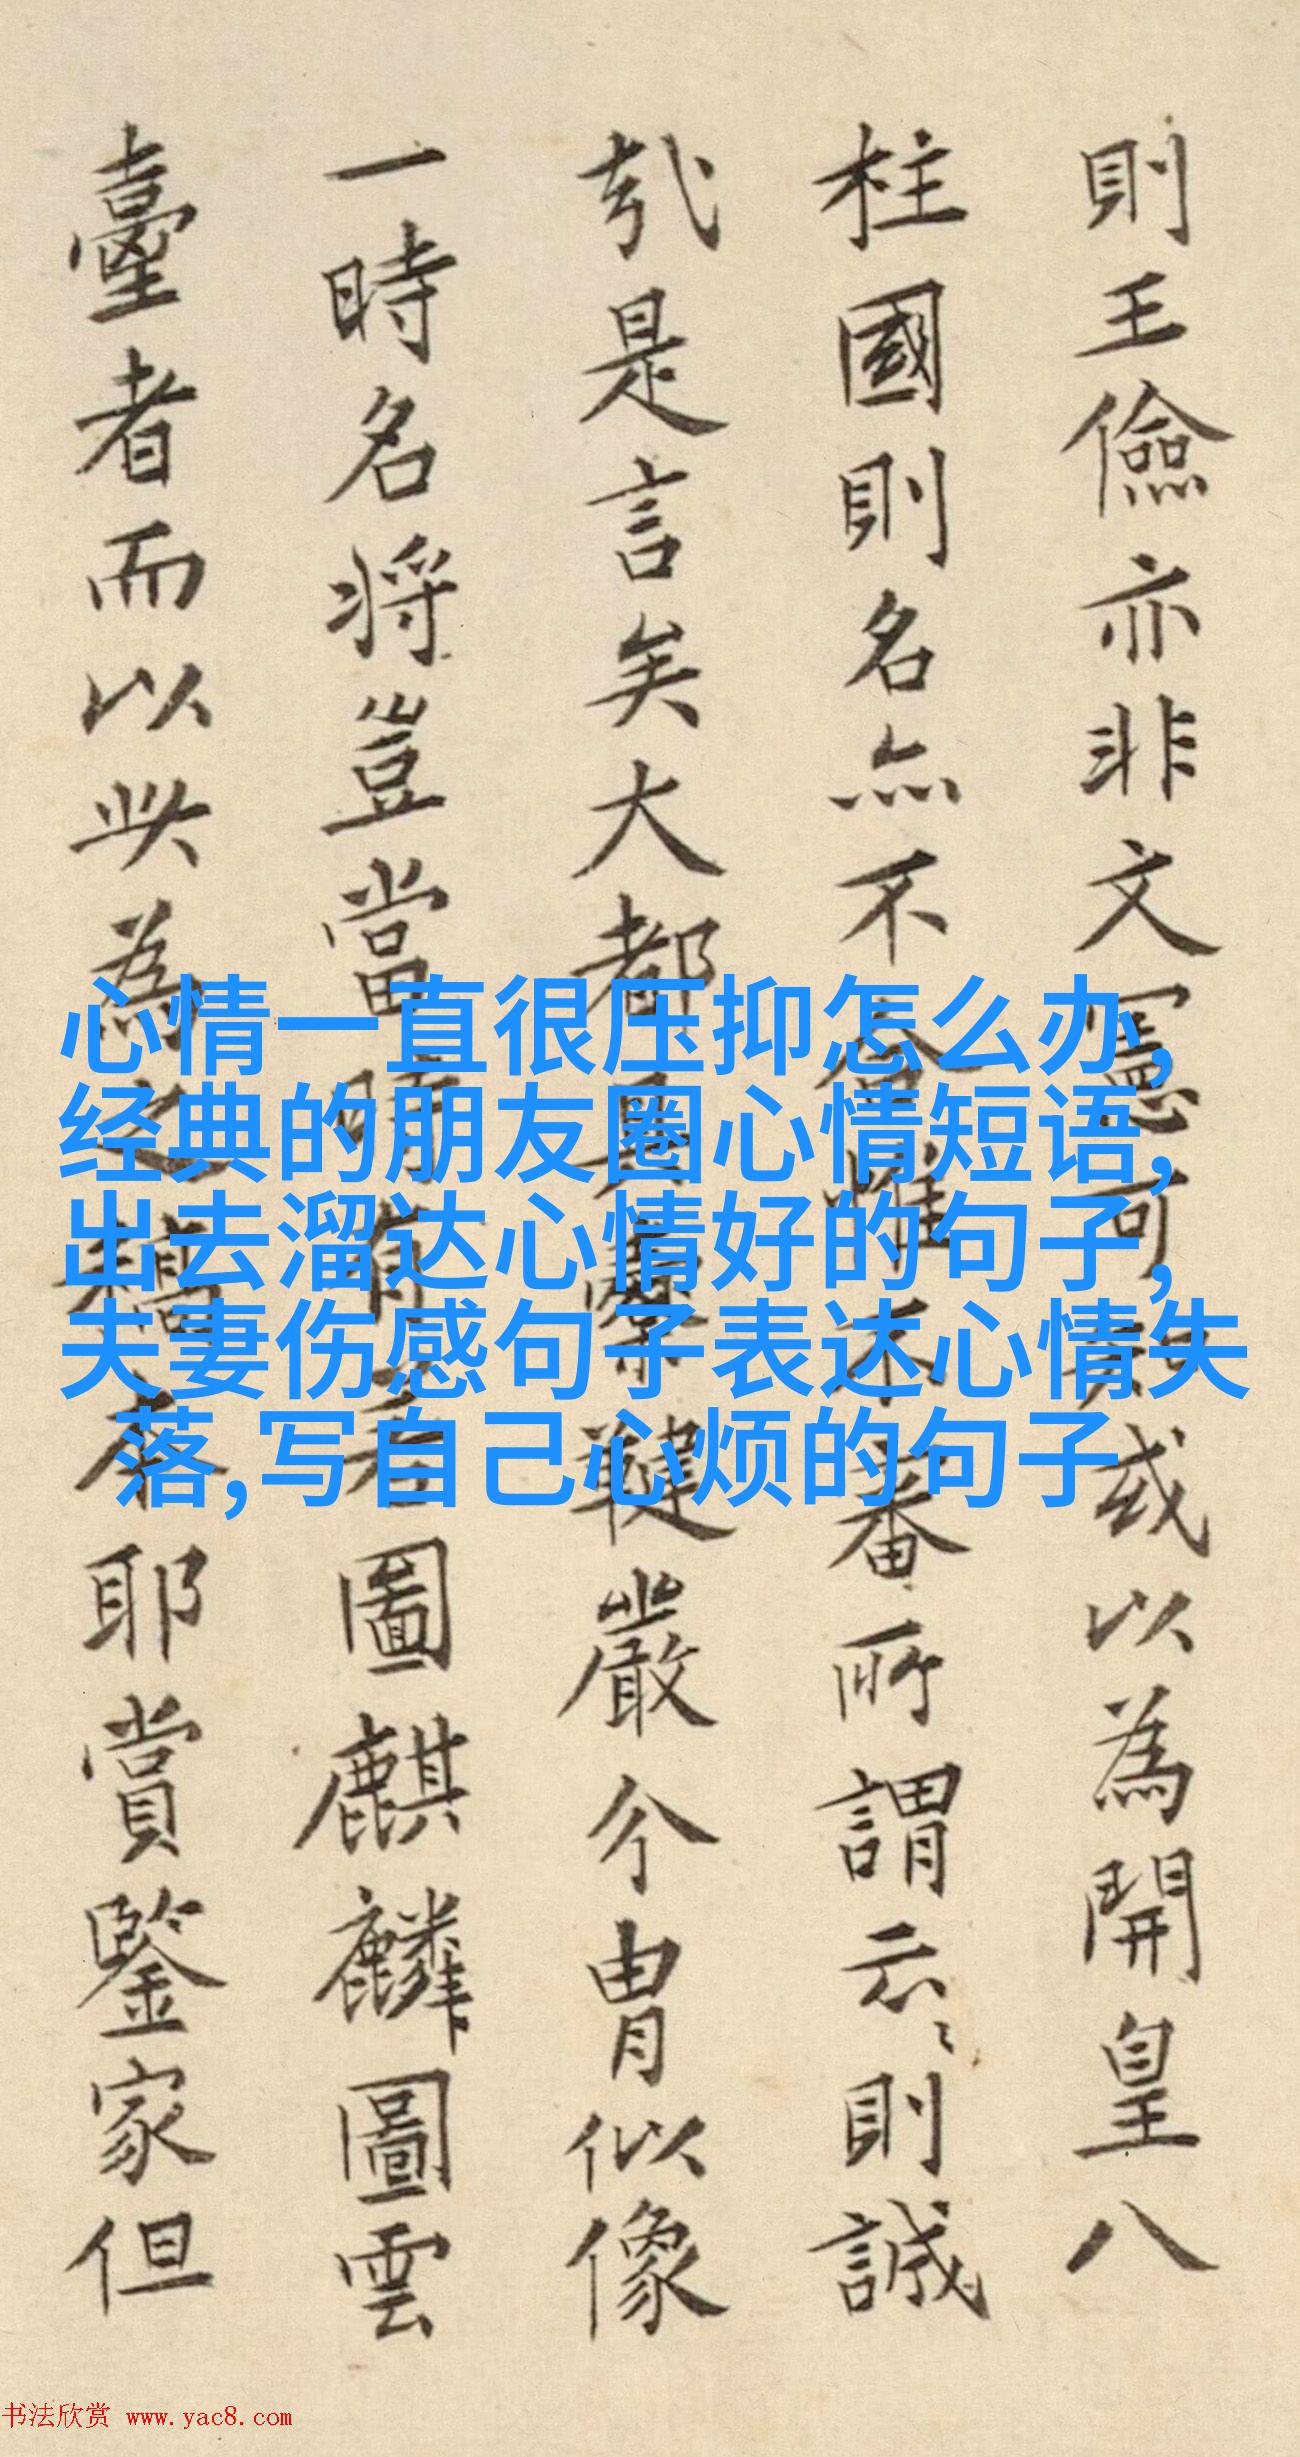 則王儉亦非文憲可知或以為開皇八
柱國則名亦不合惟不審所謂云〻則誠
哉是言矣大都具櫜鞬嚴介冑似像
一時名將豈當時有名圖麒麟圖雲
臺者而以此為之稿本耶賞鑒家但
心情一直很压抑怎么办,
经典的朋友圈心情短语,
出去溜达心情好的句子,
夫妻伤感句子表达心情失
落,写自己心烦的句子
书法欣赏 www.yac8.com